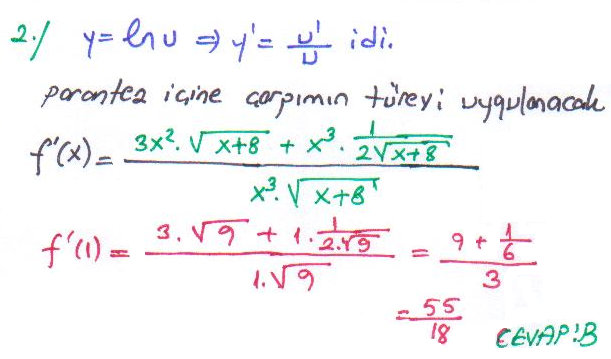 2./ y= ln u ⇒ y' = u'/u idi.
parantez içine çarpımın türevi uygulanacak
f'(x) = (3x². √(x+8) + x³. 1/(2√(x+8))) / (x³. √(x+8))
f'(1) = (3. √9 + 1. 1/(2.√9)) / (1.√9) = (9 + 1/6) / 3
= 55/18 CEVAP:B